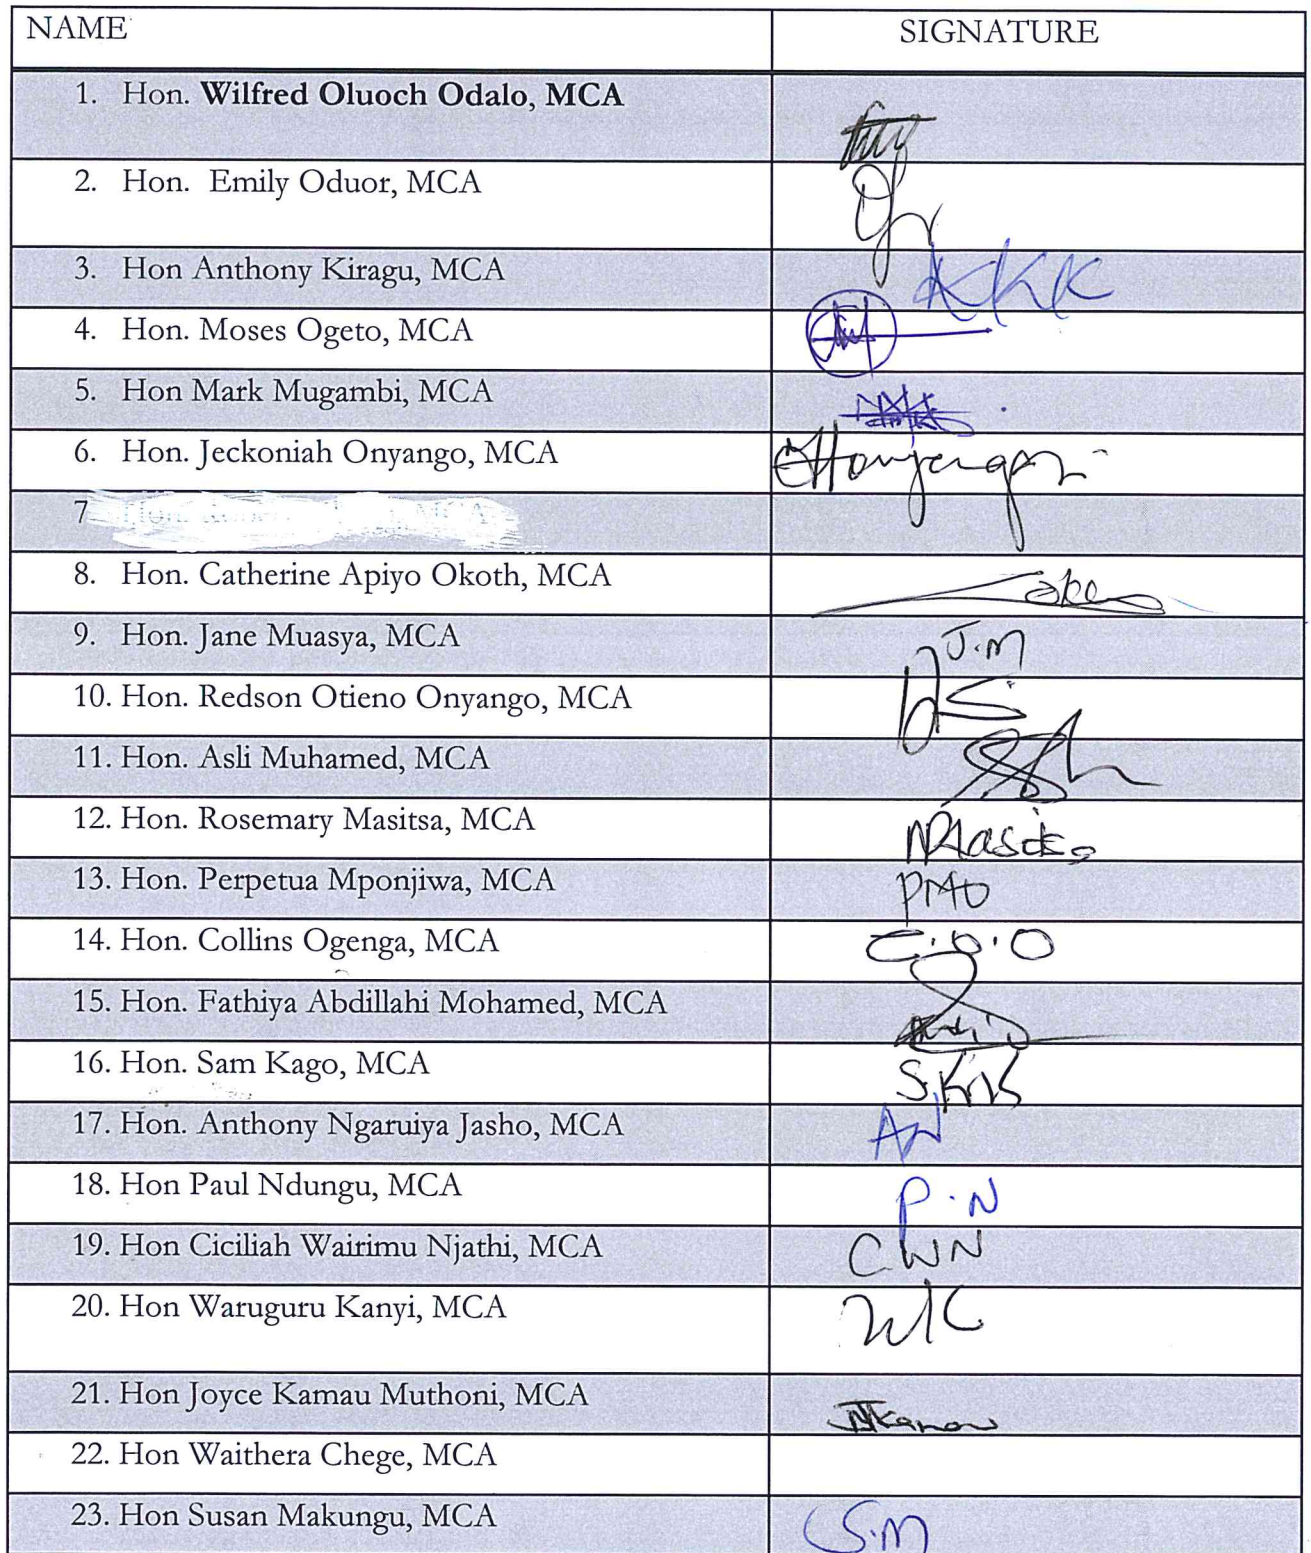 NAME SIGNATURE
1. Hon. Wilfred Oluoch Odalo, MCA
2. Hon. Emily Oduor, MCA
3. Hon Anthony Kiragu, MCA KKK
4. Hon. Moses Ogeto, MCA
5. Hon Mark Mugambi, MCA
6. Hon. Jeckoniah Onyango, MCA
7
8. Hon. Catherine Apiyo Okoth, MCA
9. Hon. Jane Muasya, MCA J.M
10. Hon. Redson Otieno Onyango, MCA
11. Hon. Asli Muhamed, MCA
12. Hon. Rosemary Masitsa, MCA
13. Hon. Perpetua Mponjiwa, MCA PMO
14. Hon. Collins Ogenga, MCA C.O.O
15. Hon. Fathiya Abdillahi Mohamed, MCA
16. Hon. Sam Kago, MCA
17. Hon. Anthony Ngaruiya Jasho, MCA AN
18. Hon Paul Ndungu, MCA P.N
19. Hon Ciciliah Wairimu Njathi, MCA CWN
20. Hon Waruguru Kanyi, MCA WK
21. Hon Joyce Kamau Muthoni, MCA
22. Hon Waithera Chege, MCA
23. Hon Susan Makungu, MCA S.M